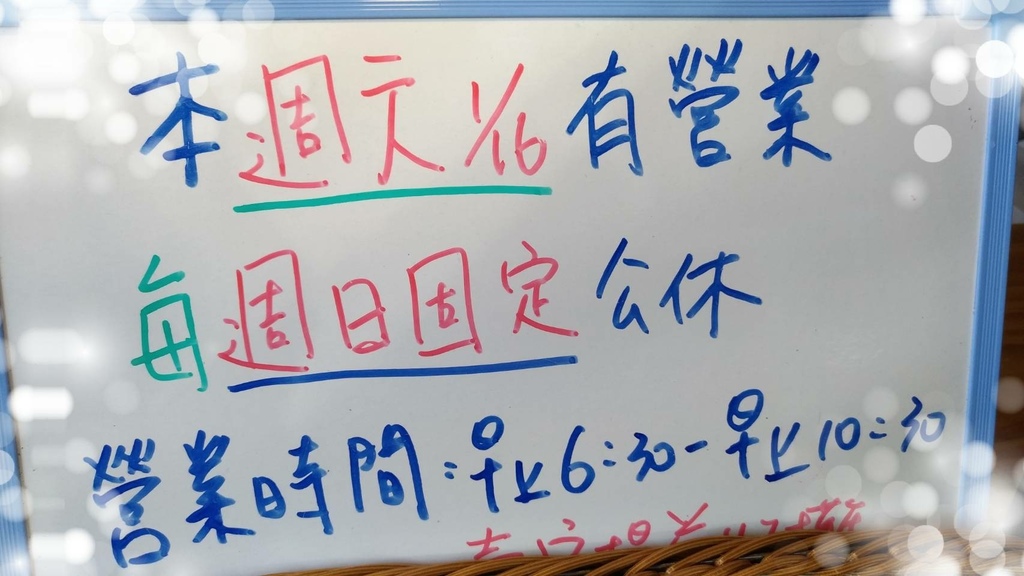 本週天 1/16 有營業
每週日固定公休
營業時間：早上6:30-早上10:30